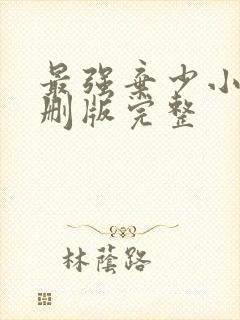 最强弃少小
删版完整
林蔭路